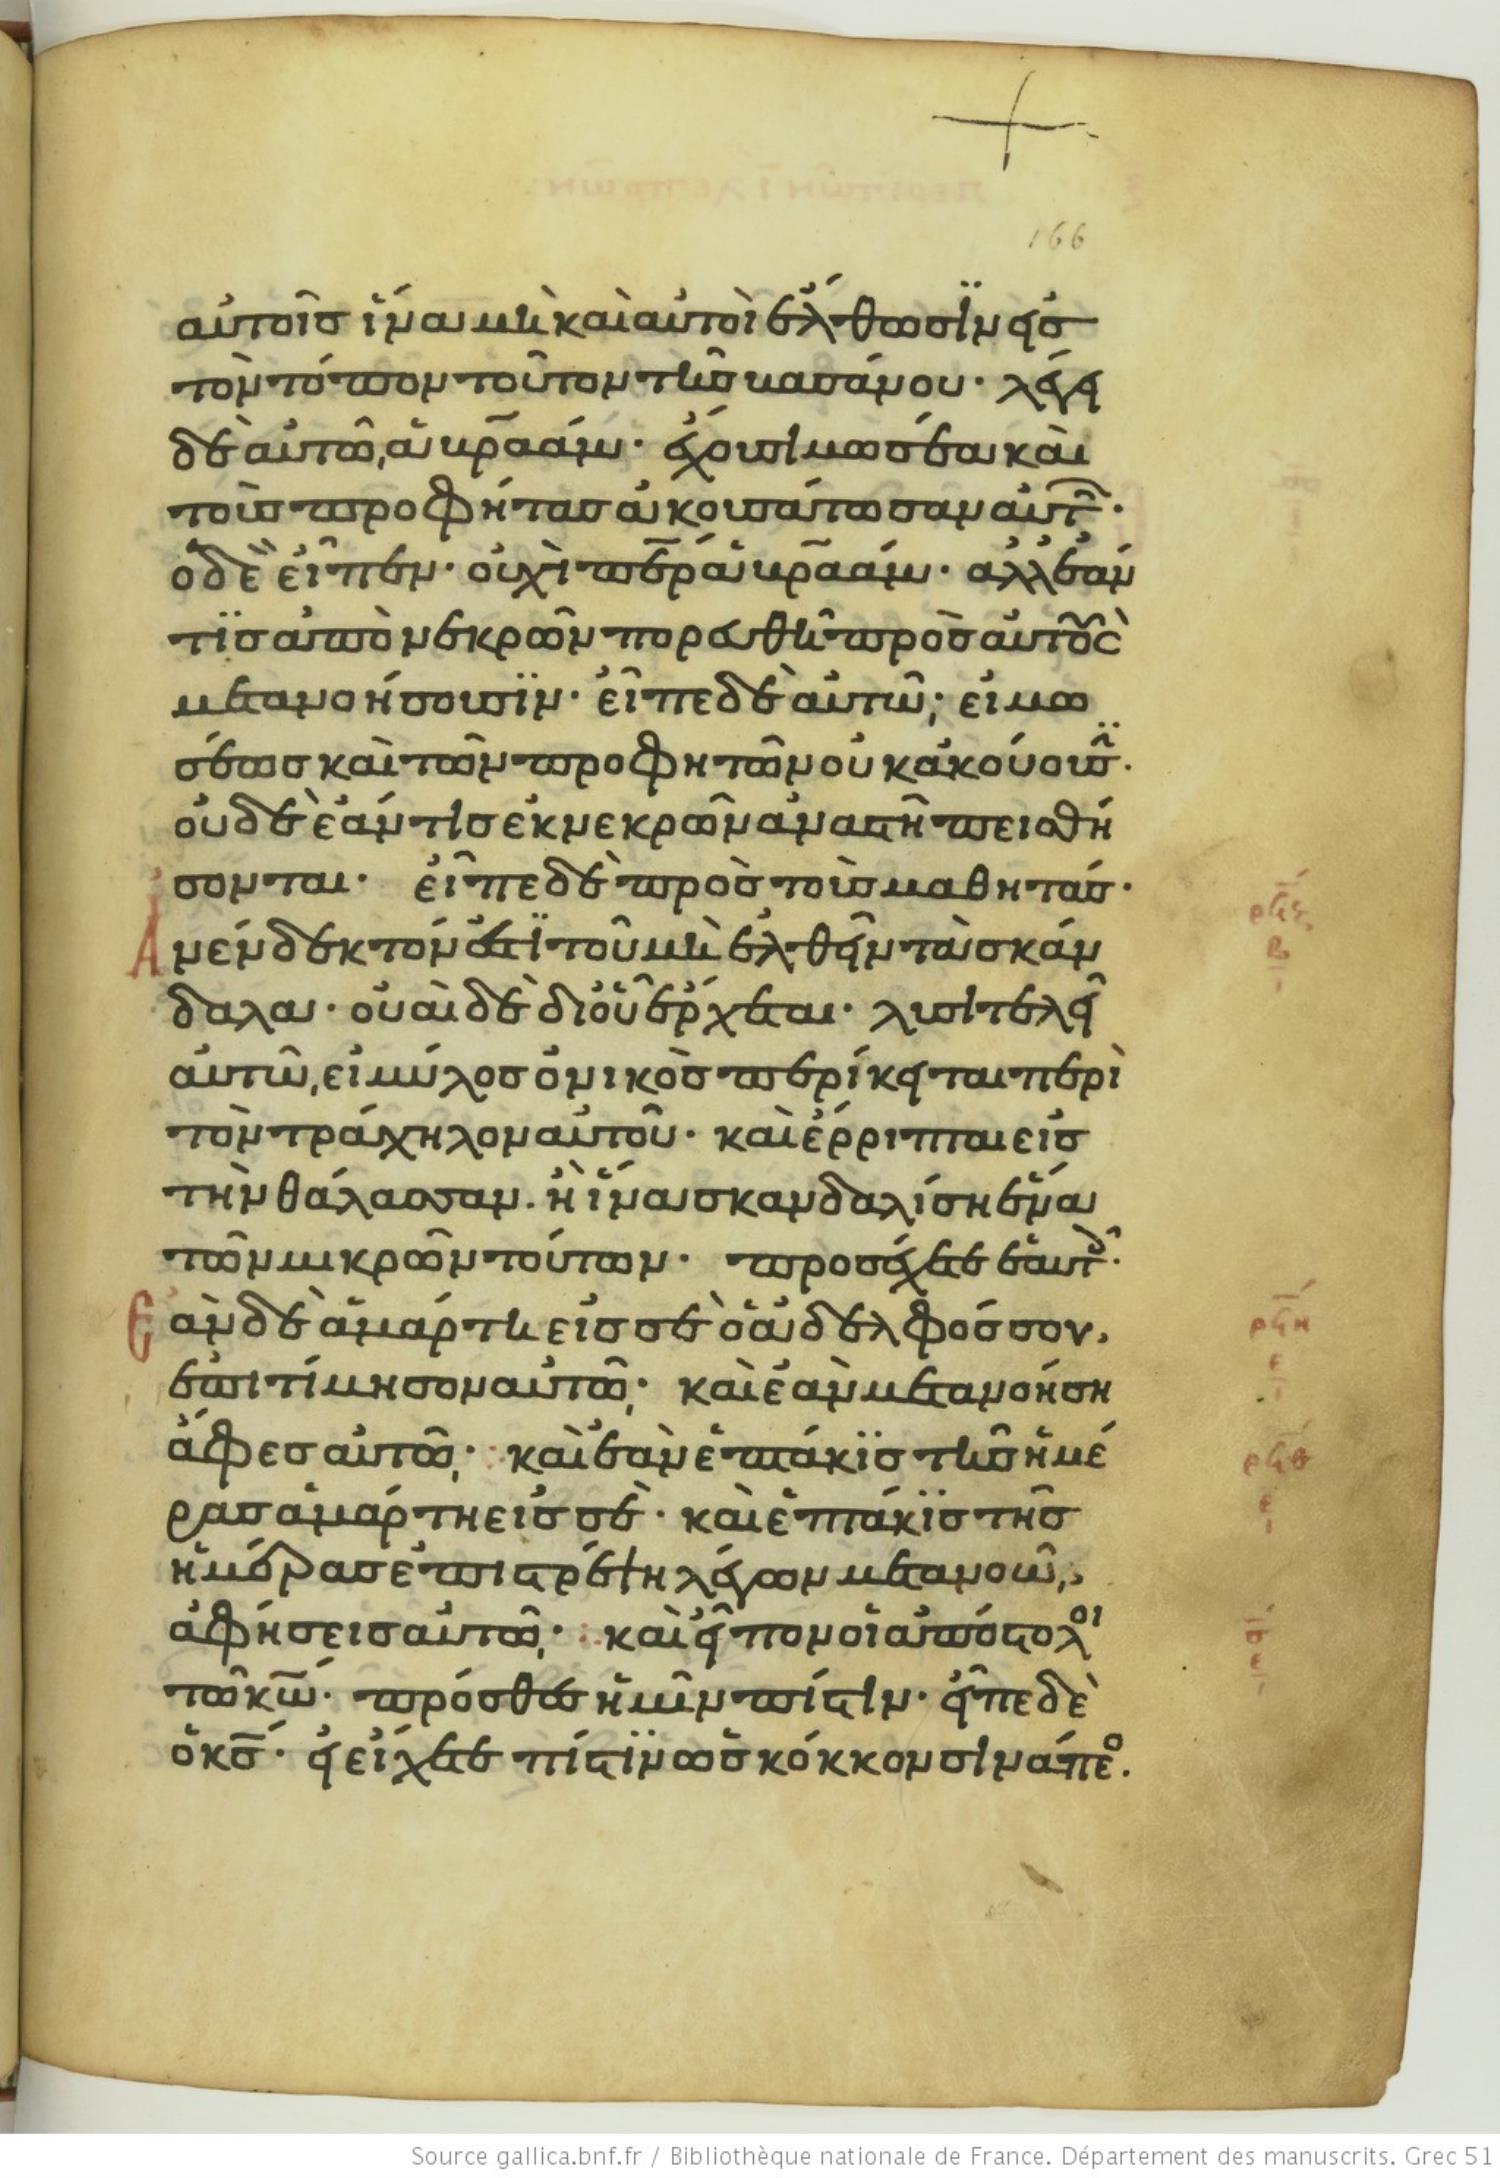 166
αὐτοῖς ἵνα μὴ καὶ αὐτοὶ ἔλθωσϊν εἰς
τὸν τόπον τοῦτον τῆς βασάνου· λέγει
δὲ αὐτῶ, ἀβρ̅αάμ· ἔχουσι μωσέα καὶ
τοὺς προφήτας ἀκουσάτωσαν αὐτῶ̅·
ὁ δὲ εἶπεν· οὐχὶ πε̅ρ ἀβρ̅αάμ· ἀλλ ἐάν
τϊς ἀπὸ νεκρῶν πορευθῆ πρὸς αὐτοὺς
μετανοήσουσϊν· εἶπε δὲ αὐτῶ; εἰ μω
σέως καὶ τῶν προφητῶν οὐκ ἀκούουσϊ̅·
οὐδὲ ἐάν τις ἐκ νεκρῶν ἀναστῆ πεισθή
σονται· εἶπε δὲ πρὸς τοὺς μαθητάς·
Ἀνένδεκτόν ἐστϊ τοῦ μὴ ἐλθεῖν τὰ σκάν
δαλα· οὐαὶ δὲ δι οὗ ἔρχεται· λυσιτελεῖ
αὐτῶ, εἰ μύλος ὀνικὸς περίκειται περὶ
τὸν τράχηλον αὐτοῦ· καὶ ἔρριπται εἰς
τὴν θάλασσαν. ἢ ἵνα σκανδαλίση ἕνα
τῶν μικρῶν τούτων· προσέχετε ἑαυτ·
Ἐὰν δὲ ἁμάρτη εἰς σὲ ὁ ἀδελφός σου,
ἐπιτίμησον αὐτῶ; καὶ ἐὰν μετανοήση
ἄφες αὐτῶ; καὶ ἐὰν ἑπτάκϊς τῆς ἡμέ
ρας ἁμάρτη εἰς σὲ· καὶ ἑπτάκϊς τῆς
ἡμέρας ἐπιστρέψη λέγων μετανοῶ,
ἀφήσεις αὐτῶ; καὶ εἶπον οἱ ἀπόστολοι
τῶ κ̅ω· πρόσθες ἡμῖν πίστιν· εἶπε δὲ
ὁ κ̅ς· εἰ εἴχετε πίστϊν ὡς κόκκον σινάπεο.
ρϟζ
β
ρϟη
ε
ρϟθ
ε
σ
ε
Source gallica.bnf.fr / Bibliothèque nationale de France. Département des manuscrits. Grec 51